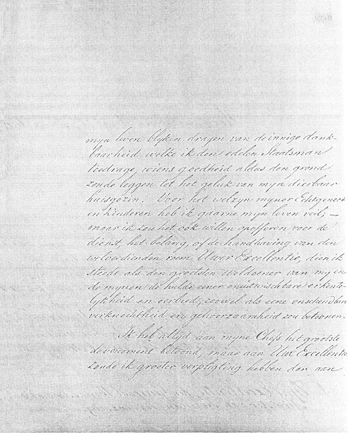 mijn leven blijken dragen van de innige dank-
baarheid welke ik den edelen Staatsman
toedrage, wiens goedheid aldus den grond
zoude leggen tot het geluk van mijn dierbaar
huisgezin. Voor het welzijn mijner Echtgenoote
en kinderen heb ik gaarne mijn leven veil;
maar ik zou het ook willen opofferen voor de
dienst, het belang, of de handhaving van den
roem Uwer Excellentie, dien ik
steeds als den grootsten weldoener van mij en
de mijnen de hulde eener onuitwischbare erkente-
lijkheid en eerbied, zoowel als eene onschendbare
verknochtheid en gehoorzaamheid zou betoonen.
Ik heb altijd aan mijne Chefs het grootste
devouement betoond, maar aan Uwe Excellentie
zoude ik grooter verpligting hebben dan aan